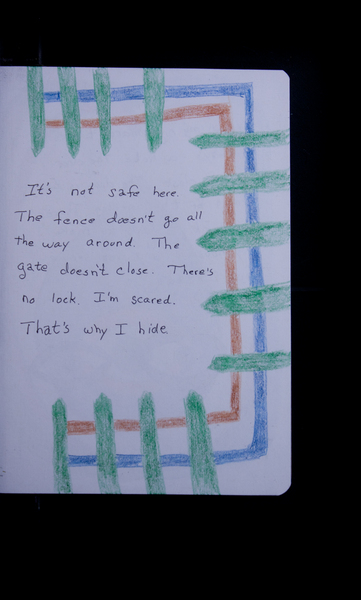 It's not safe here.
The fence doesn't go all
the way around. The
gate doesn't close. There's
no lock. I'm scared.
That's why I hide.